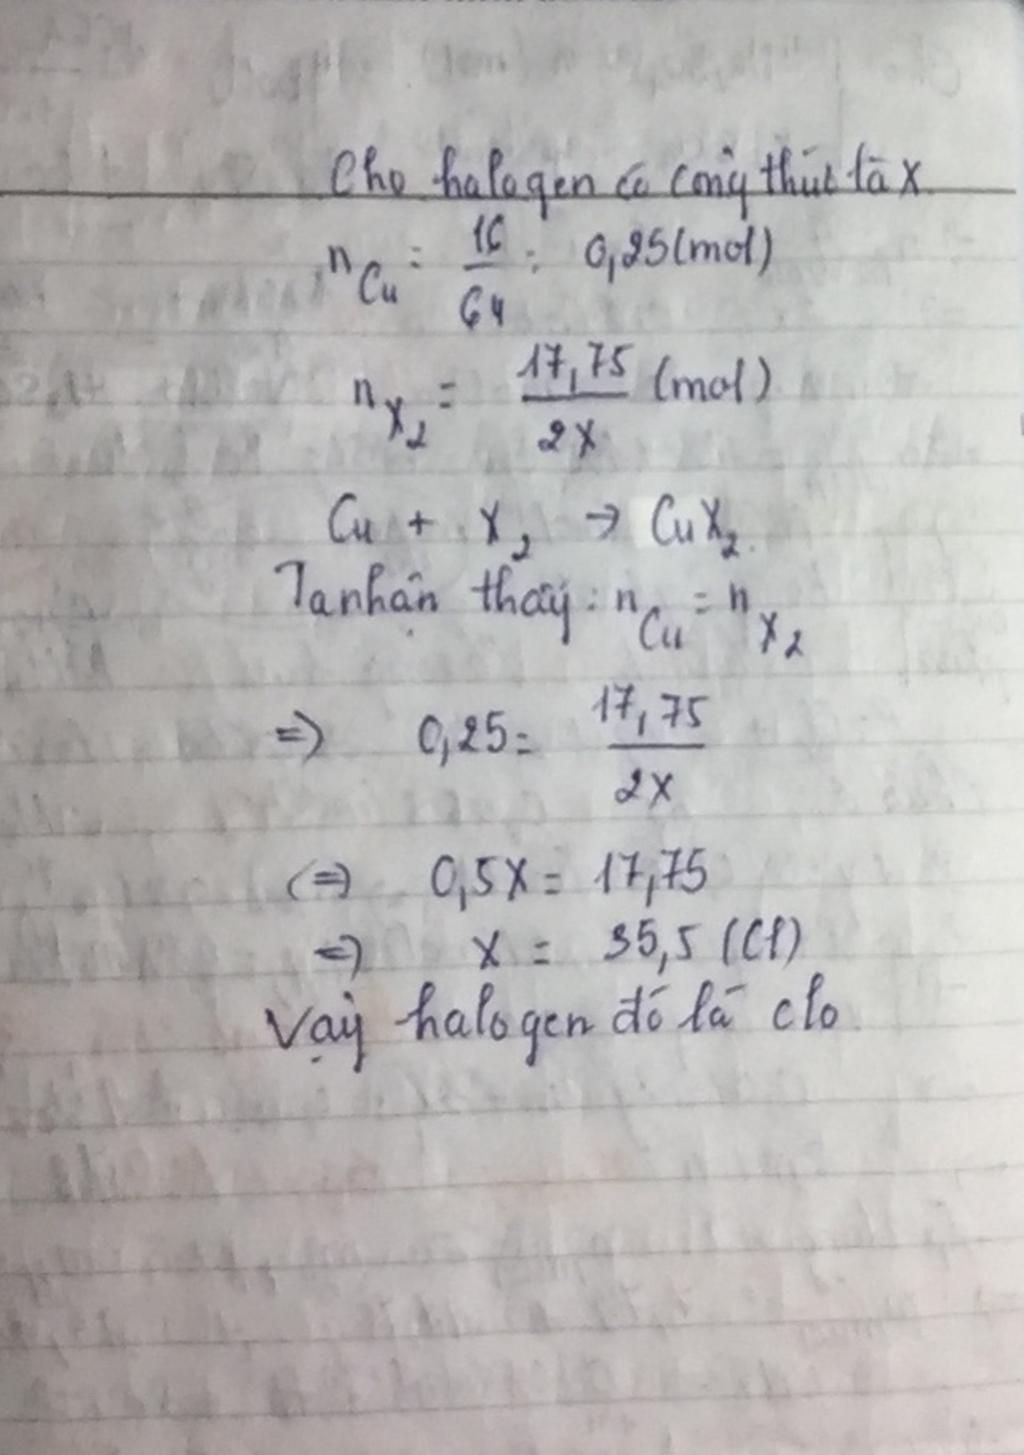 Cho halogen có công thức là X
n Cu = 16/64 = 0,25 (mol)
n X₂ = 17,75/2X (mol)
Cu + X₂ → CuX₂.
Ta nhận thấy : n Cu = n X₂
=> 0,25 = 17,75/2X
<=> 0,5X = 17,75
=> X = 35,5 (Cl)
Vậy halogen đó là clo